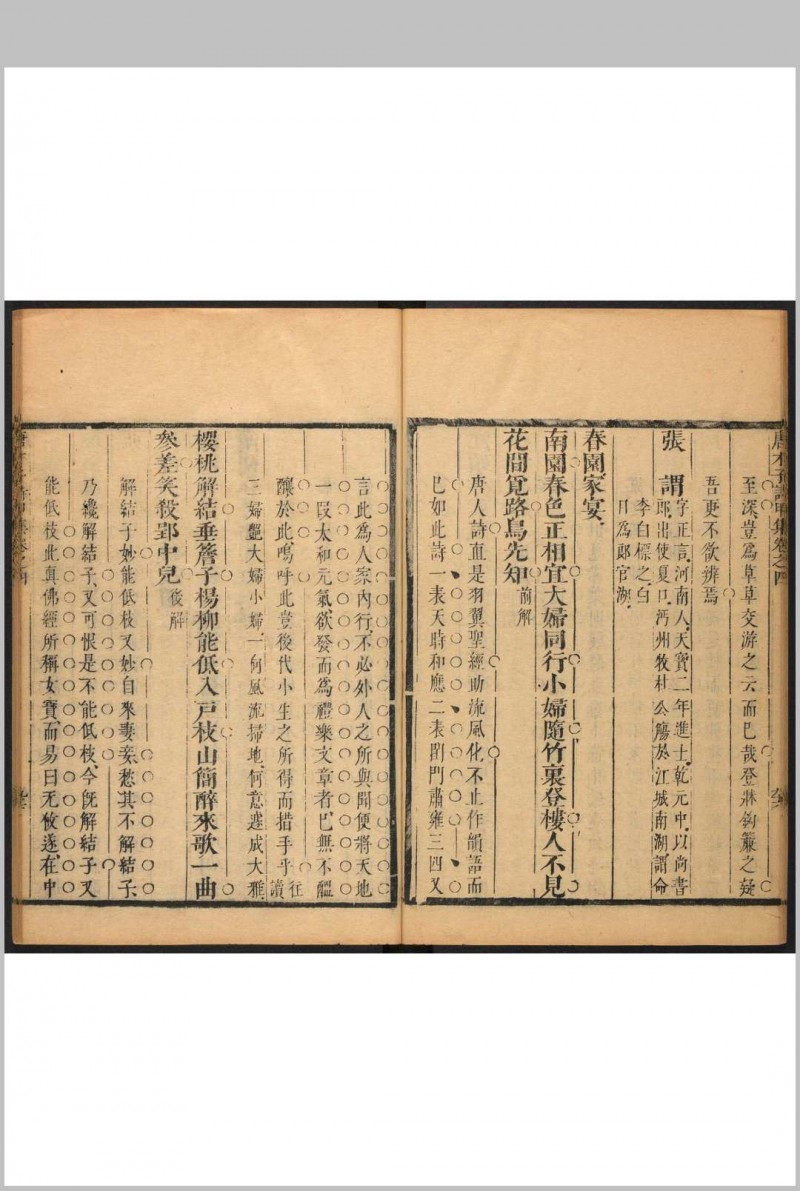 至深豈為草草交游之云而已哉登牀鉤簾之疑
吾更不欲辨焉
張謂
字正言河南人天寶二年進士乾元中以尚書
郎出使夏口沔州牧杜公觴於江城南湖謂命
李白標之白
目為郎官湖
春園家宴
南園春色正相宜大婦同行小婦隨竹裏登樓人不見
花間覓路鳥先知前解
唐人詩直是羽翼聖經助流風化不止作韻語而
已如此詩一表天時和應二表閨門肅雍三四又
言此為人家內行不必外人之所與聞便將天地
一段太和元氣欲發而為禮樂文章者已無不醞
釀於此嗚呼此豈後代小生之所得而措手乎往讀
三婦艷大婦小婦一向風流掃地何意遂成大雅
櫻桃解結垂簷子楊柳能低入戶枝山簡醉來歌一曲
參差笑殺郢中兒後解
解結子妙能低枝又妙自來妻妾愁其不解結子
乃纔解結子又可恨是不能低枝今既解結子又
能低枝此真佛經所稱女寶而易曰无攸遂在中